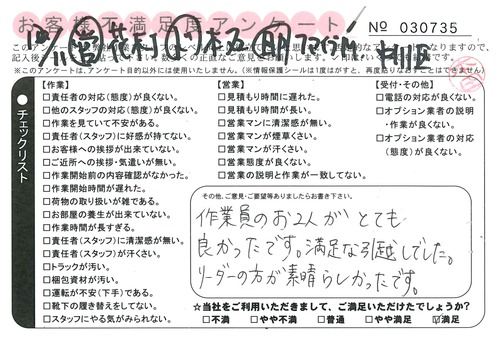 お客様不満足度アンケート
№ 030735
※このアンケートは、アンケート目的以外には使用いたしません。(※情報保護シールは1度はがすと、再度貼りなおすことはできません)
チェックリスト
【作業】
□責任者の対応(態度)が良くない。
□他のスタッフの対応(態度)が良くない。
□作業を見ていて不安がある。
□責任者(スタッフ)に好感が持てない。
□お客様への挨拶が出来ていない。
□ご近所への挨拶・気遣いが無い。
□作業開始前の内容確認がなかった。
□作業開始時間が遅れた。
□荷物の取り扱いが雑である。
□お部屋の養生が出来ていない。
□作業時間が長すぎる。
□責任者(スタッフ)に清潔感が無い。
□責任者(スタッフ)が汗くさい。
□トラックが汚い。
□梱包資材が汚い。
□運転が不安(下手)である。
□靴下の履き替えをしてない。
□スタッフにやる気がみられない。
【営業】
□見積もり時間に遅れた。
□見積もり時間が長い。
□営業マンに清潔感が無い。
□営業マンが煙草くさい。
□営業マンが汗くさい。
□営業態度が良くない。
□営業の説明と作業が一致してない。
【受付・その他】
□電話の対応が良くない。
□オプション業者の説明・作業が良くない。
□オプション業者の対応(態度)が良くない。
その他、ご意見・ご要望等ありましたらお書き下さい。
作業員のお2人がとても
良かったです。満足な引越しでした。
リーダーの方が素晴らしかったです。
☆当社をご利用いただきまして、ご満足いただけたでしょうか?
□不満 □やや不満 □普通 □やや満足 ☑満足